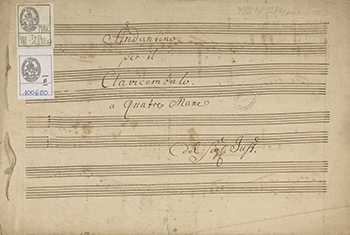 Andantino
per il
Clavicembalo.
a Quatro Mani
Del Sigr. Just.
100650